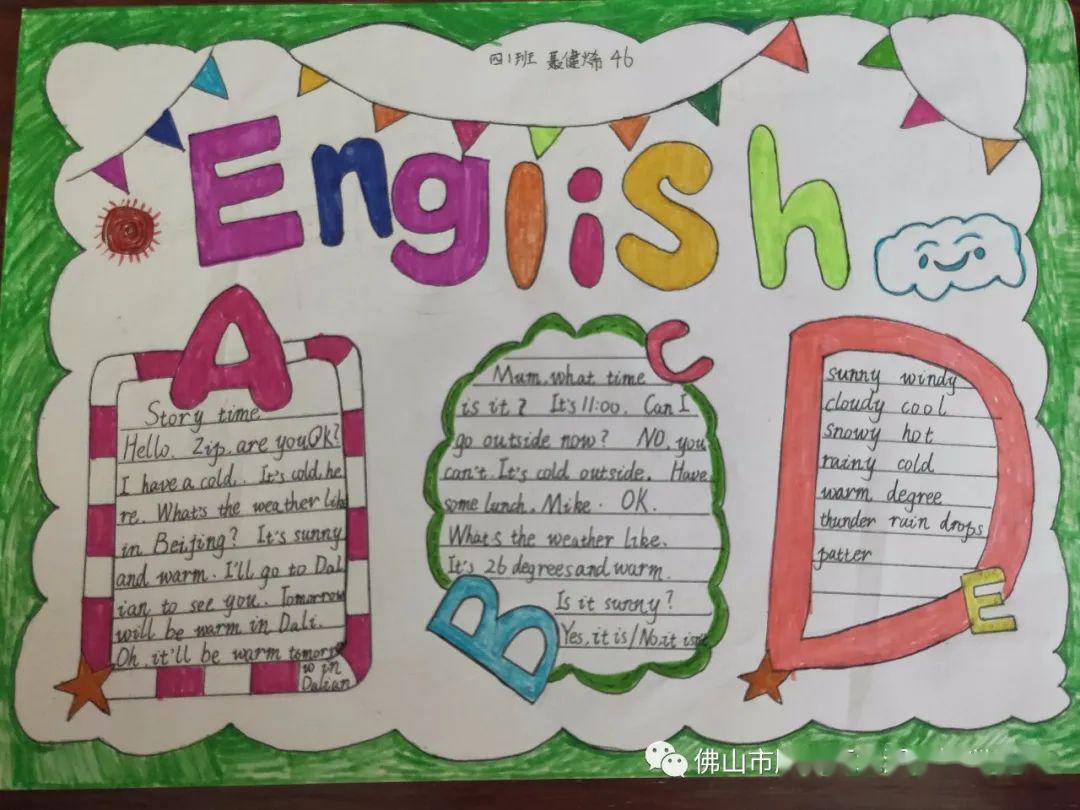 四1班 聂健烯 46
English
A
Story time
Hello. Zip, are you Ok?
I have a cold. It's cold he
re. What's the weather like
in Beijing? It's sunny
and warm. I'll go to Dal
ian to see you. Tomorrow
will be warm in Dali.
Oh, it'll be warm tomorro
w in
Dalian
C
Mum, what time
is it? It's 11:00. Can I
go outside now? NO, you
can't. It's cold outside. Have
some lunch, Mike. OK.
What's the weather like.
It's 26 degrees and warm.
Is it sunny?
Yes, it is/No, it isn't
B
D
sunny windy
cloudy cool
snowy hot
rainy cold
warm degree
thunder rain drops
patter
E
佛山市